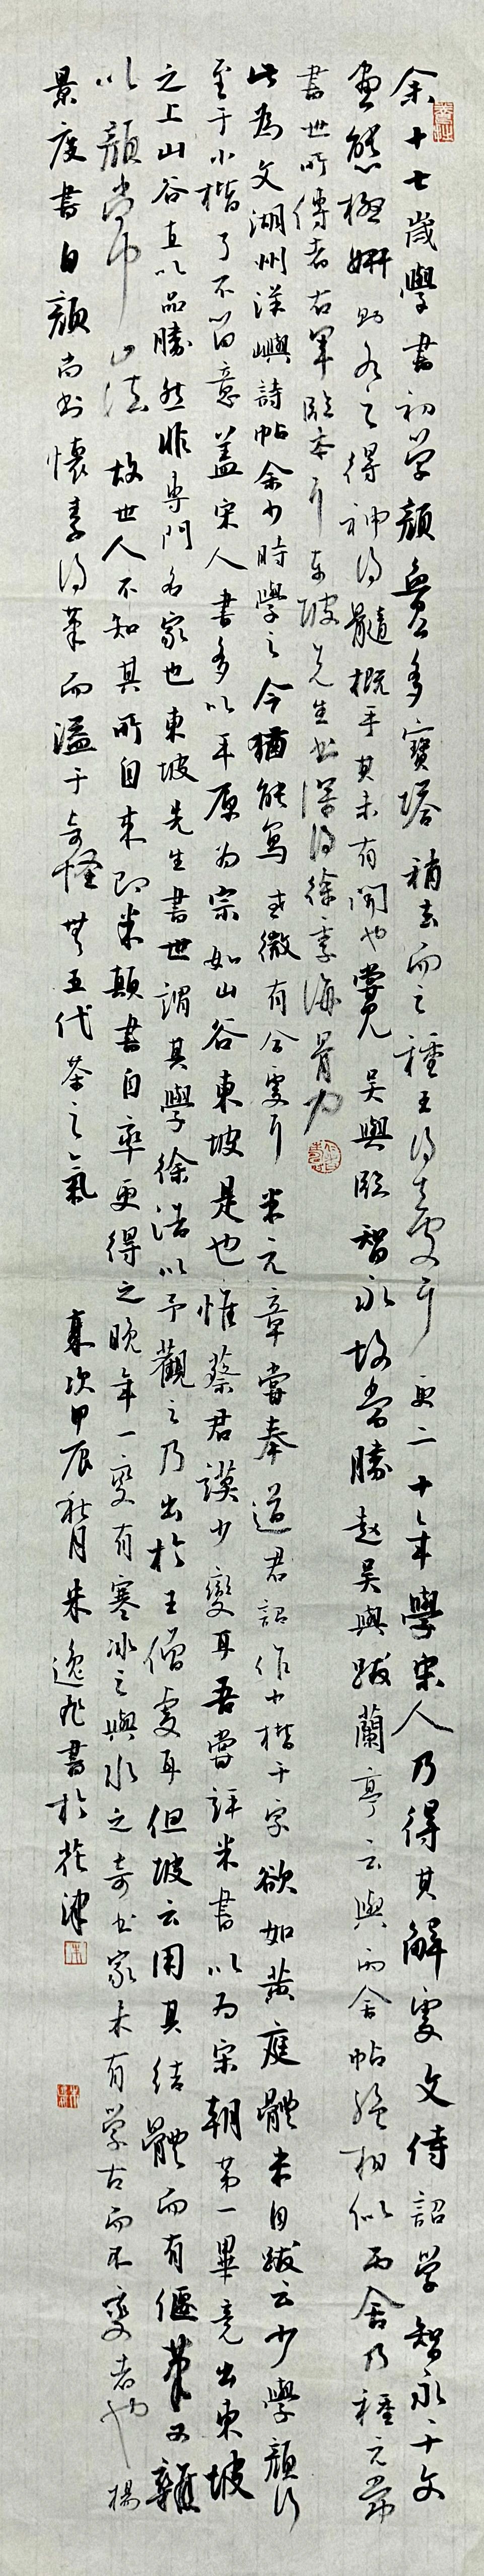 余十七歲學書初学顏魯公多寶塔稍去而之種王得其處耳更二十年學宋人乃得其解處文待詔学智永千文
盡態極妍則有之得神得髓概乎其未有聞也嘗見吳興臨智永故當勝趙吳興跋蘭亭云與丙舍帖絕相似丙舍乃種元常
書世所傳者右軍臨本耳東坡先生書深得徐季海骨力
此為文湖州洋嶼詩帖余少時學之今猶能寫或微有合處耳米元章嘗奉道君詔作小楷千字欲如黃庭體米自跋云少學顏行
至于小楷了不留意蓋宋人書多以平原為宗如山谷東坡是也惟蔡君謨少變耳吾嘗評米書以為宋朝第一畢竟出東坡
之上山谷直以品勝然非專門名家也東坡先生書世謂其學徐浩以予觀之乃出於王僧虔耳但坡云用其結體而有偃筆又雜
以顏常山法故世人不知其所自来即米顛書自率更得之晚年一變有寒冰之與水之奇書家未有学古而不變者也楊
景度書自顏尚書懷素得筆而溢于奇怪無五代茶之氣
歲次甲辰秋月朱逸飛書於花津